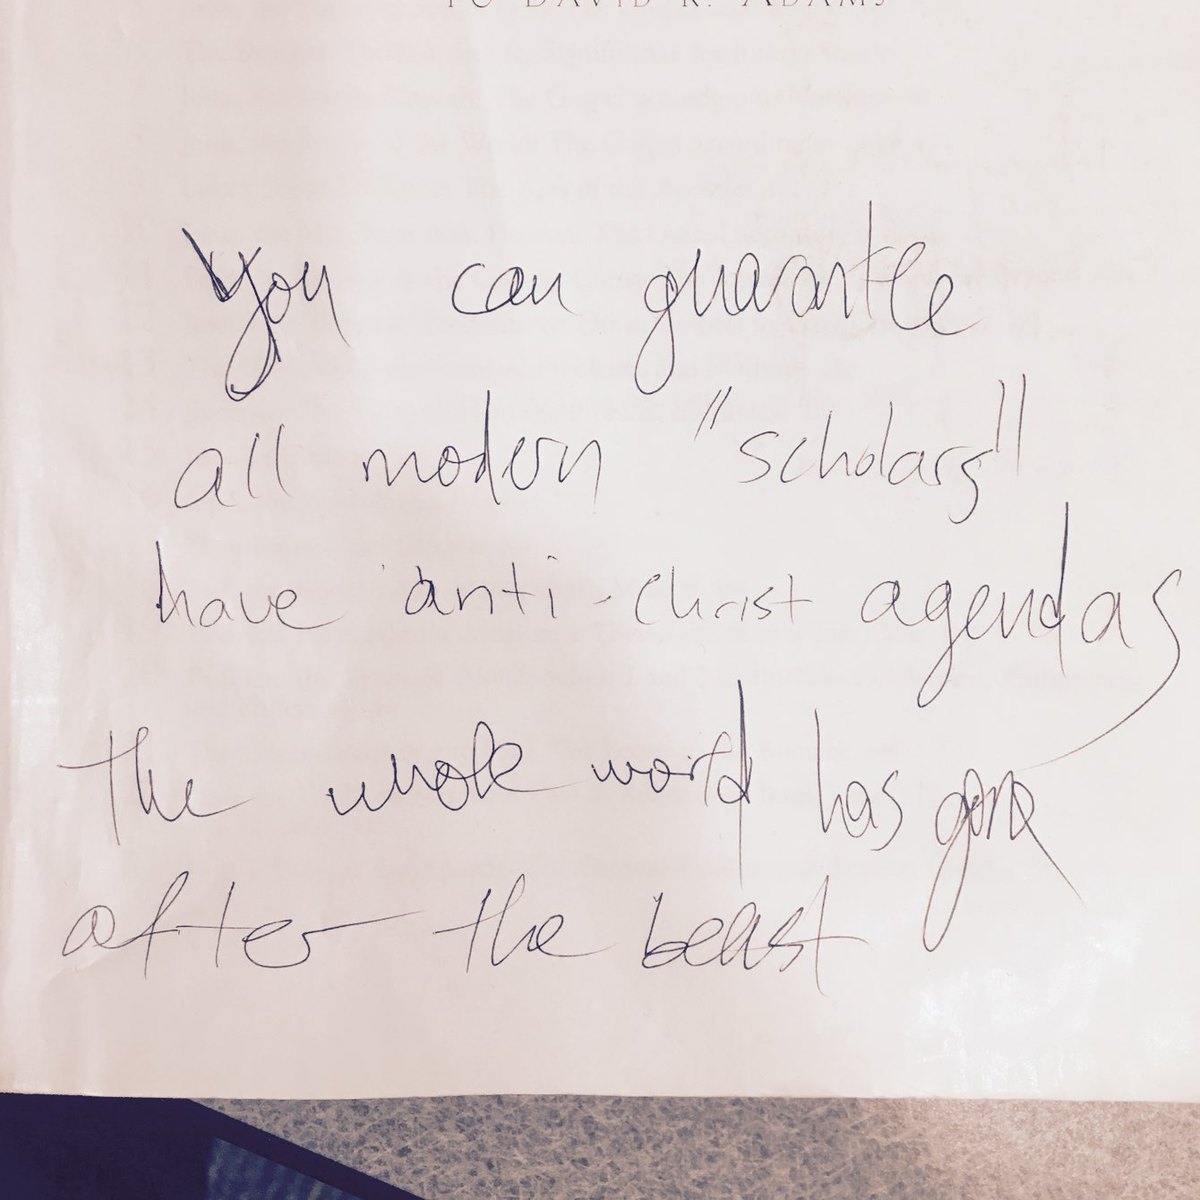 TO DAVID R. ADAMS
you can guarantee
all modern "scholars"
have anti-christ agendas
the whole world has gone
after the beast